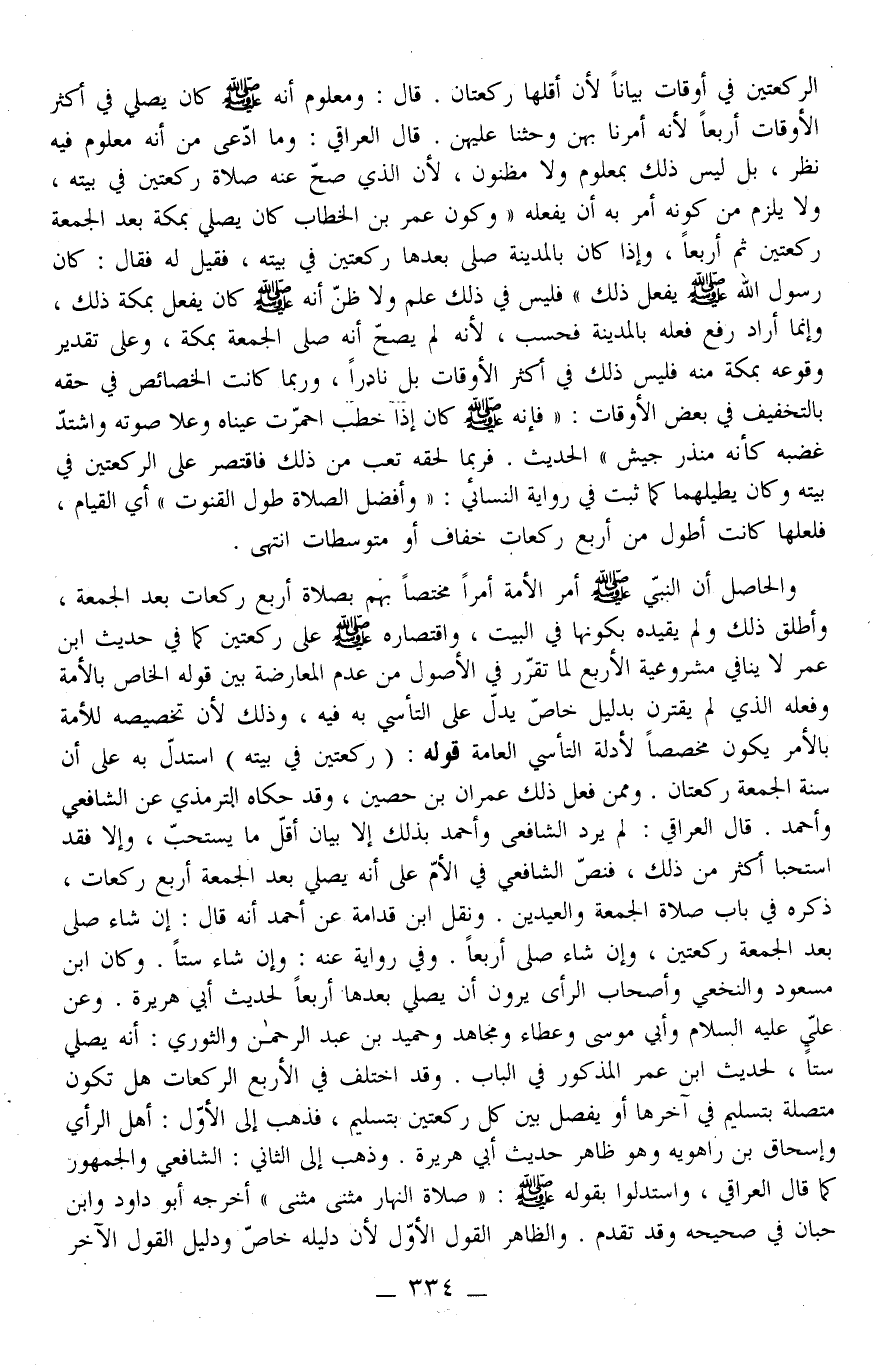 الركعتين في أوقات بياناً لأن أقلها ركعتان . قال : ومعلوم أنه ﷺ كان يصلي في أكثر
الأوقات أربعاً لأنه أمرنا بهن وحثنا عليهن . قال العراقي : وما ادّعى من أنه معلوم فيه
نظر ، بل ليس ذلك بمعلوم ولا مظنون ، لأن الذي صحّ عنه صلاة ركعتين في بيته ،
ولا يلزم من كونه أمر به أن يفعله « وكون عمر بن الخطاب كان يصلي بمكة بعد الجمعة
ركعتين ثم أربعاً ، وإذا كان بالمدينة صلى بعدها ركعتين في بيته ، فقيل له فقال : كان
رسول الله ﷺ يفعل ذلك » فليس في ذلك علم ولا ظنّ أنه ﷺ كان يفعل بمكة ذلك ،
وإنما أراد رفع فعله بالمدينة فحسب ، لأنه لم يصحّ أنه صلى الجمعة بمكة ، وعلى تقدير
وقوعه بمكة منه فليس ذلك في أكثر الأوقات بل نادراً ، وربما كانت الخصائص في حقه
بالتخفيف في بعض الأوقات : « فإنه ﷺ كان إذا خطب احمرّت عيناه وعلا صوته واشتدّ
غضبه كأنه منذر جيش » الحديث . فربما لحقه تعب من ذلك فاقتصر على الركعتين في
بيته وكان يطيلهما كما ثبت في رواية النسائي : « وأفضل الصلاة طول القنوت » أي القيام ،
فلعلها كانت أطول من أربع ركعات خفاف أو متوسطات انتهى .
والحاصل أن النبيّ ﷺ أمر الأمة أمراً مختصاً بهم بصلاة أربع ركعات بعد الجمعة ،
وأطلق ذلك ولم يقيده بكونها في البيت ، واقتصاره ﷺ على ركعتين كما في حديث ابن
عمر لا ينافي مشروعية الأربع لما تقرّر في الأصول من عدم المعارضة بين قوله الخاص بالأمة
وفعله الذي لم يقترن بدليل خاصّ يدلّ على التأسي به فيه ، وذلك لأن تخصيصه للأمة
بالأمر يكون مخصصاً لأدلة التأسي العامة قوله : ( ركعتين في بيته ) استدلّ به على أن
سنة الجمعة ركعتان . وممن فعل ذلك عمران بن حصين ، وقد حكاه الترمذي عن الشافعي
وأحمد . قال العراقي : لم يرد الشافعى وأحمد بذلك إلا بيان أقلّ ما يستحبّ ، وإلا فقد
استحبا أكثر من ذلك ، فنصّ الشافعي في الأمّ على أنه يصلي بعد الجمعة أربع ركعات ،
ذكره في باب صلاة الجمعة والعيدين . ونقل ابن قدامة عن أحمد أنه قال : إن شاء صلى
بعد الجمعة ركعتين ، وإن شاء صلى أربعاً . وفي رواية عنه : وإن شاء ستاً . وكان ابن
مسعود والنخعي وأصحاب الرأى يرون أن يصلي بعدها أربعاً لحديث أبي هريرة . وعن
عليّ عليه السلام وأبي موسى وعطاء ومجاهد وحميد بن عبد الرحمٰن والثوري : أنه يصلي
ستاً ، لحديث ابن عمر المذكور في الباب . وقد اختلف في الأربع الركعات هل تكون
متصلة بتسليم في آخرها أو يفصل بين كل ركعتين بتسليم ، فذهب إلى الأوّل : أهل الرأي
وإسحاق بن راهويه وهو ظاهر حديث أبي هريرة . وذهب إلى الثاني : الشافعي والجمهور
كما قال العراقي ، واستدلوا بقوله ﷺ : « صلاة النهار مثنى مثنى » أخرجه أبو داود وابن
حبان في صحيحه وقد تقدم . والظاهر القول الأوّل لأن دليله خاصّ ودليل القول الآخر
ــ ٣٣٤ ــ